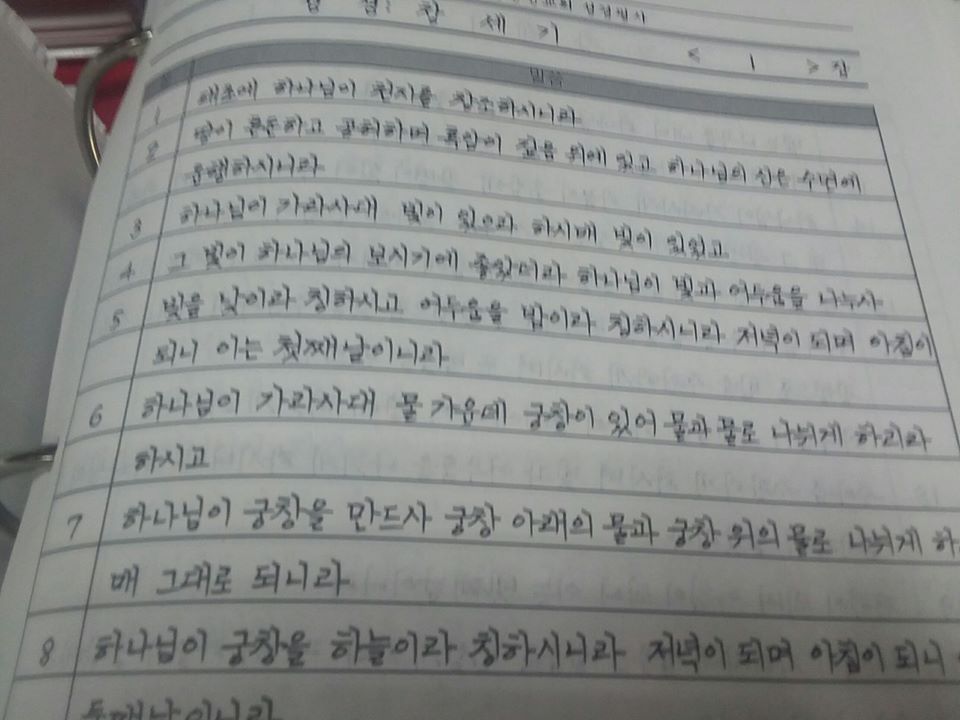 성경필사
창 세 기 < 1 > 장
말씀
1 태초에 하나님이 천지를 창조하시니라
2 땅이 혼돈하고 공허하며 흑암이 깊음 위에 있고 하나님의 신은 수면에
운행하시니라
3 하나님이 가라사대 빛이 있으라 하시매 빛이 있었고
4 그 빛이 하나님의 보시기에 좋았더라 하나님이 빛과 어두움을 나누사
5 빛을 낮이라 칭하시고 어두움을 밤이라 칭하시니라 저녁이 되며 아침이
되니 이는 첫째 날이니라
6 하나님이 가라사대 물 가운데 궁창이 있어 물과 물로 나뉘게 하리라
하시고
7 하나님이 궁창을 만드사 궁창 아래의 물과 궁창 위의 물로 나뉘게 하
매 그대로 되니라
8 하나님이 궁창을 하늘이라 칭하시니라 저녁이 되며 아침이 되니
둘째날이니라